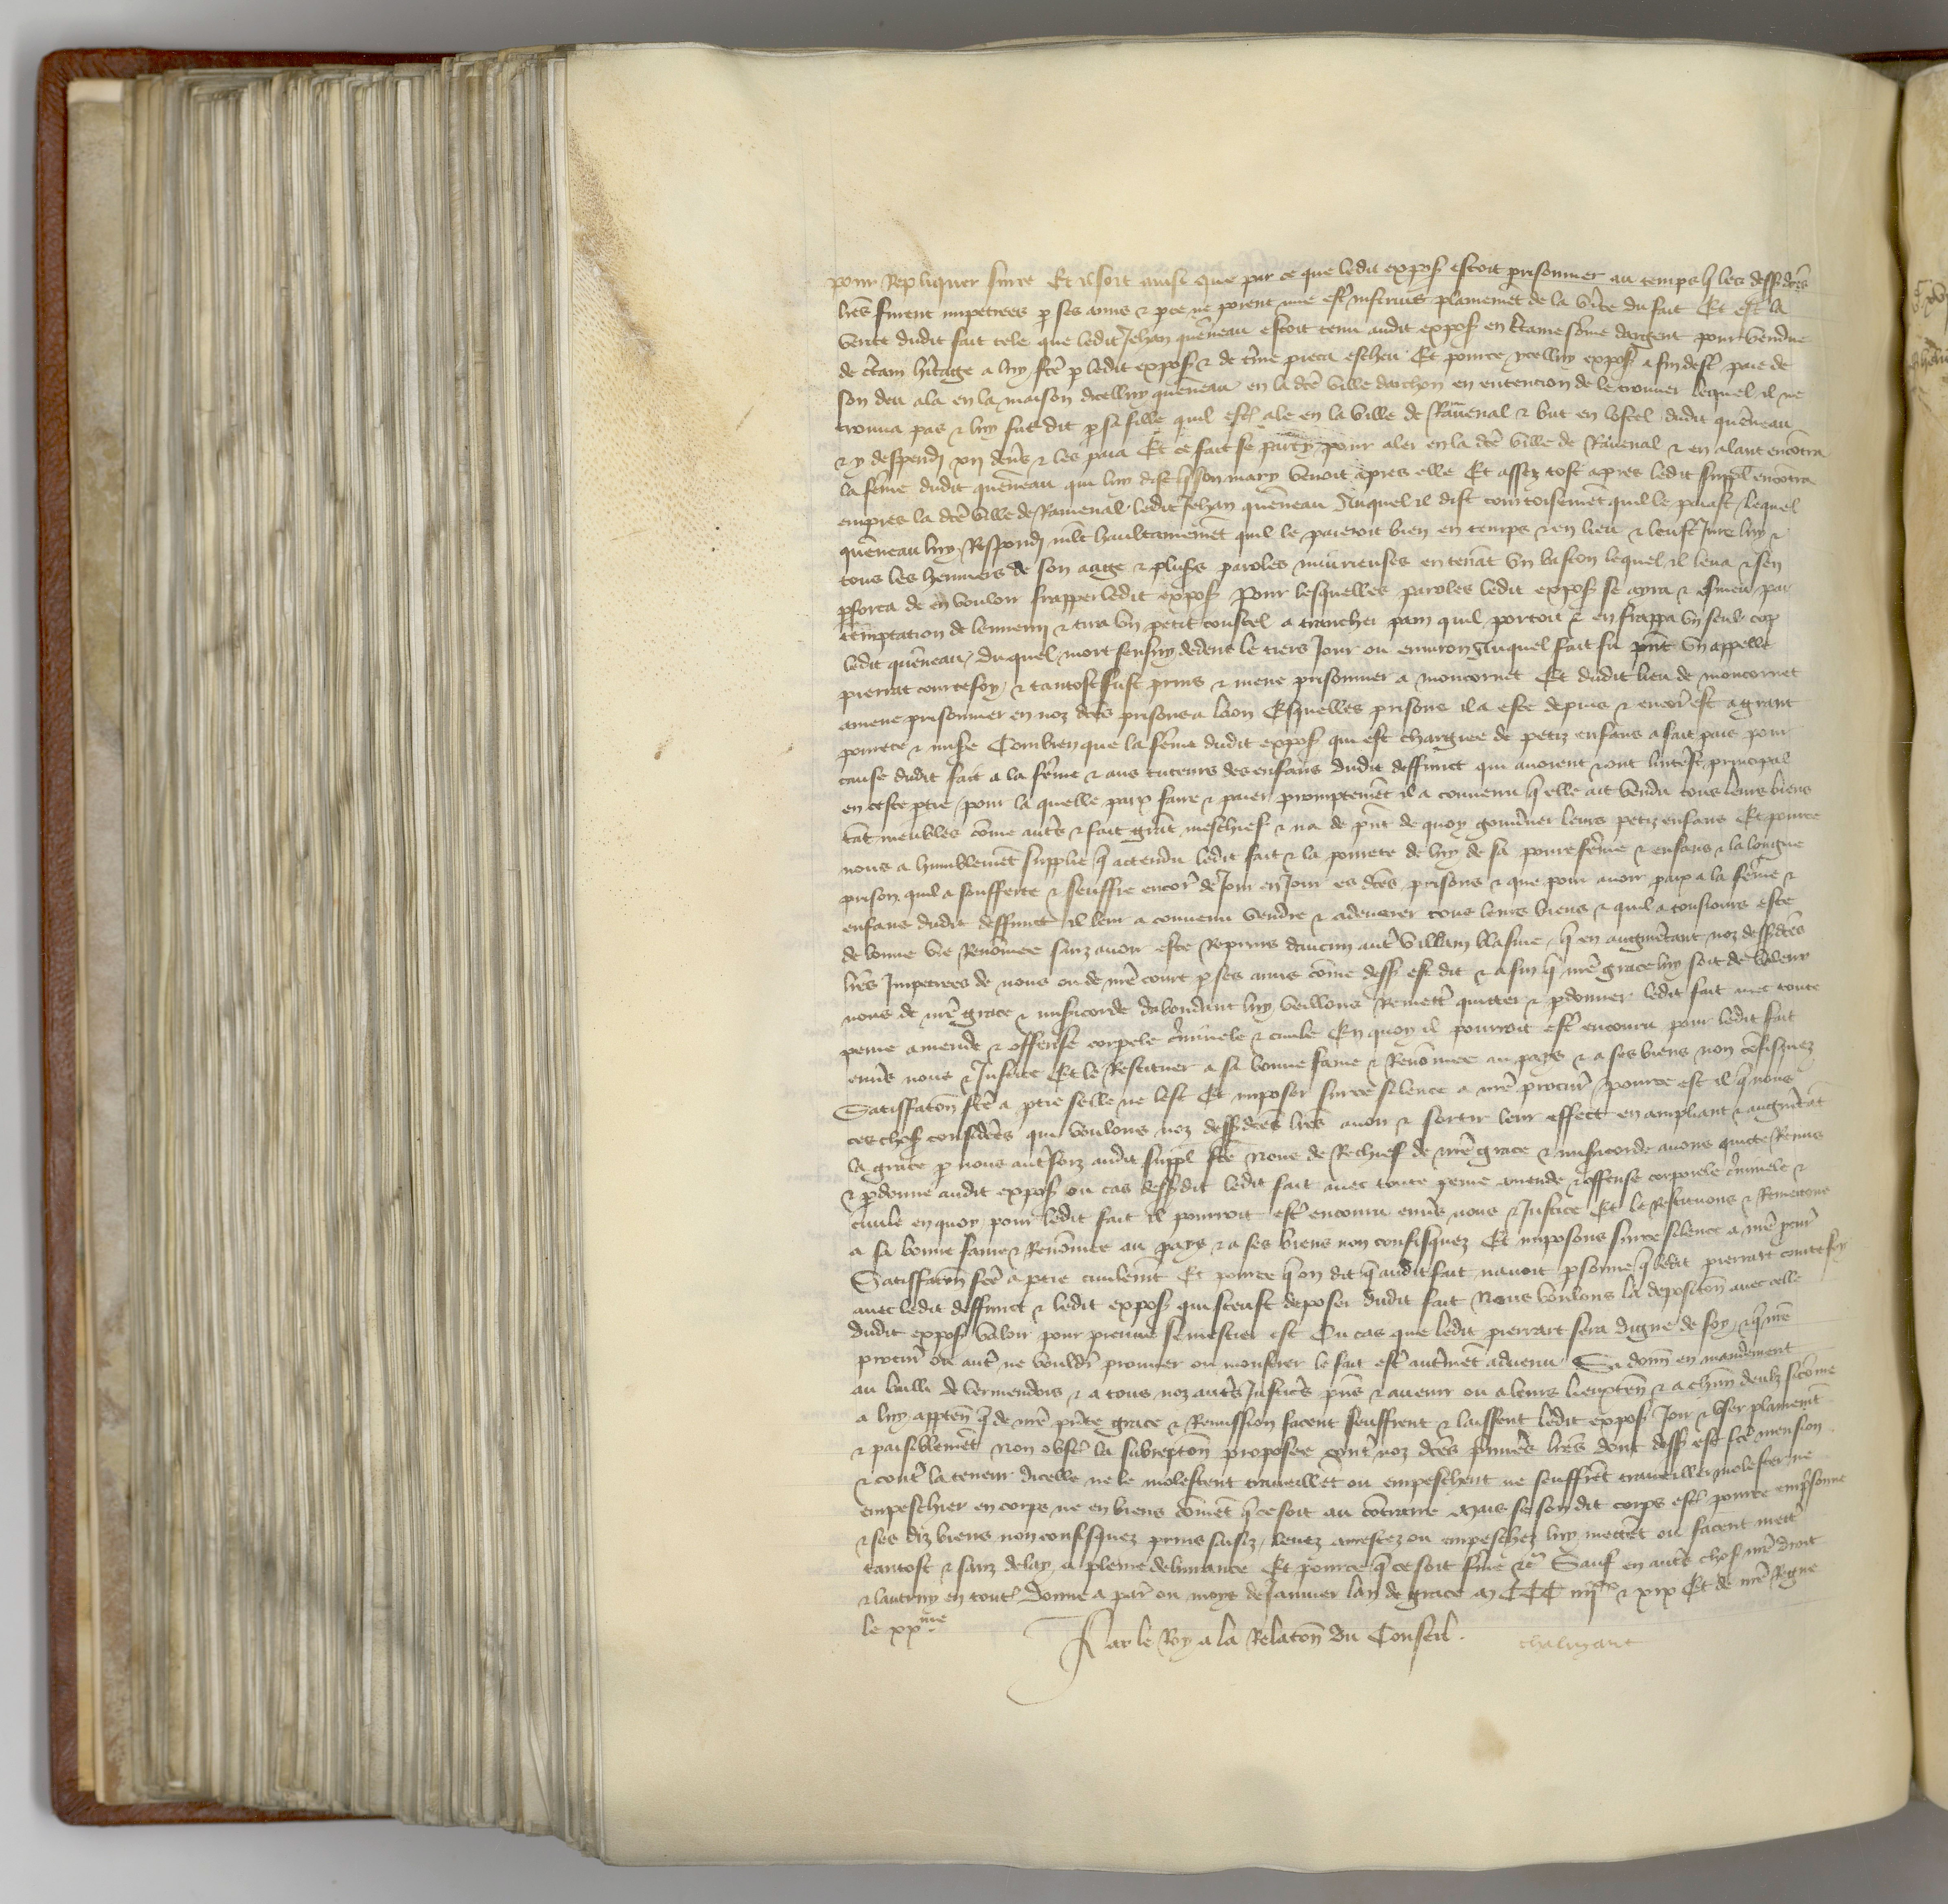 pour repliquer sur ce Et il soit ainsi que par ce que ledit expos estoit prisonnier au temps q les dess dces
lres furent impetrees p ses amis & pce ne porent mie est instruis plainemet de la verite du fait Et est la
verite dudit fait tele que ledit Jehan queneau estoit tenu audit expos en ctaine some dargent pour vendue
de ctain hitage a luy fce p ledit expos & de tme pieca escheu Et pource ycelluy expos afin dest paie de
son deu ala en la maison dicelluy queneau en la dce ville darchon en entencion de le trouver lequel il ne
trouva pas & luy fut dit p sa fille quil est ale en la ville de Ravenal & but en lostel dudit queneau
& y despendi xii den's & les paia Et ce fait se party pour aler en la dce ville de Ravenal & en alant encotra
la feme dudit queneau qui luy dist q son mary venoit apres elle Et assez tost apres ledit suppl encotra
empres la dce ville de Ravenal ledit Jehan queneau Auquel il dist courtoisemet quil le paiast lequel
queneau luy respondi mlt haultainemet quil le paieroit bien en temps & en lieu & leust Jure luy &
tous les hermiers de son aage & plus's paroles iniurieuses en tenat un baston lequel il leva & sen
pforca de en vouloir frapper ledit expos Pour lesquelles paroles ledit expos se ayra & esmeu par
temptation de lennemi & tira un petit coustel a trancher pain quil portoit & en frappa un seul cop
ledit queneau duquel mort sensuy dedens le tiers Jour ou environ Auquel fait fu pnt un appelle
pierrat courtefoy & tantost fust prins & mene prisonnier a moncornet Et dudit lieu de moncornet
amene prisonnier en noz dces prisons a laon Esquelles prisons il a este depuis & encor est a grant
povrete & mise Combien que la feme dudit expos qui est chargiee de petiz enfans a fait paix pour
cause dudit fait a la feme & aus tuteurs des enfans dudit deffunct qui avoient & ont linterest principal
en ceste ptie pour la quelle paix faire & paier promptemet il a convenu q elle ait vendu tous leurs biens
tat meubles come auts & fait grat meschief & na de pnt de quoy gouvner leurs petiz enfans Et pource
nous a humblemet supplie q attendu ledit fait & la povrete de luy de sa povre feme & enfans & la longue
prison quil a soufferte & seuffre encor de Jour en Jour es dces prisons & que pour avoir paix a la feme &
enfans dudit deffunct il leur a convenu vendre & adenerer tous leurs biens & quil a tousiours este
de bonne vie renomee sanz avoir este reprins daucun aut villain blasme q en augmetant noz dess dces
lres Impetrees de nous ou de nre court p ses amis come dess est dit & a fin q nre grace luy soit de valeur
nous de nre grace & misicorde dabondant luy veillons remett quitter & pdonner ledit fait avec toute
peine amende & offense corpele criminele & civile En quoy il pourroit est encouru pour ledit fait
envs nous & Justice Et le restituer a sa bonne fame & renommee au pays & a ses biens non cofisquez
Satisfaton fce a ptie selle ne lest Et imposer sur ce silence a nre procur Pource est il q nous
ces chos considees qui voulons noz dess dces lres avoir & sortir leur effect en ampliant & augmetat
la grace p nous autresfoiz audit suppl fce Nous de rechief de nre grace & misicorde avons quitte remis
& pdonne audit expos ou cas dess dit ledit fait avec toute peine amende & offense corporele criminele &
civile en quoy pour ledit fait il pourroit est encouru envs nous & Justice Et le restituons & remettons
a sa bonne fame & renommee au pays & a ses biens non confisquez Et imposons sur ce silence a nre pcur
Satisfaton fce a ptie civilemt Et pource q on dit q audit fait navoit psonne q ledit pierrart courtefoy
avec ledit deffunct & ledit expos qui sceust deposer dudit fait Nous voulons la depositon avec celle
dudit expos valoir pour preuve se mestier est Ou cas que ledit pierrart sera digne de foy & q nre
procur ou aut ne vouldr prouver ou monstrer le fait est autmet advenu Si donn en mandement
au bailli de vermendois & a tous noz auts Justices pns & avenir ou a leurs lieuxten & a chun deulz sicome
a luy appten q de nre pnte grace & remission facent seuffrent & laissent ledit expos Joir & user plainemt
& paisiblemet non obst la subrepton proposee cont noz dces pmiers lres dont dess est fce mension
& cont la teneur dicelle ne le molestent travaillet ou empeschent ne seuffret travaillier molester ne
empeschier en corps ne en biens comet q ce soit au cotraire mais se son dit corps est pource emprisonne
& ses diz biens non confisquez prins saisiz levez arrestez ou empeschez luy mettet ou facent mett
tantost & sanz delay a pleine delivrance Et pource q ce soit ferme &c Sauf en auts chos nre droit
& lautruy en tout Donne a par ou moys de Janvier lan de grace m CCC iiijxx & xix Et de nre regne
le xxme
Par le Roy a la relaton du Conseil. chaligaut